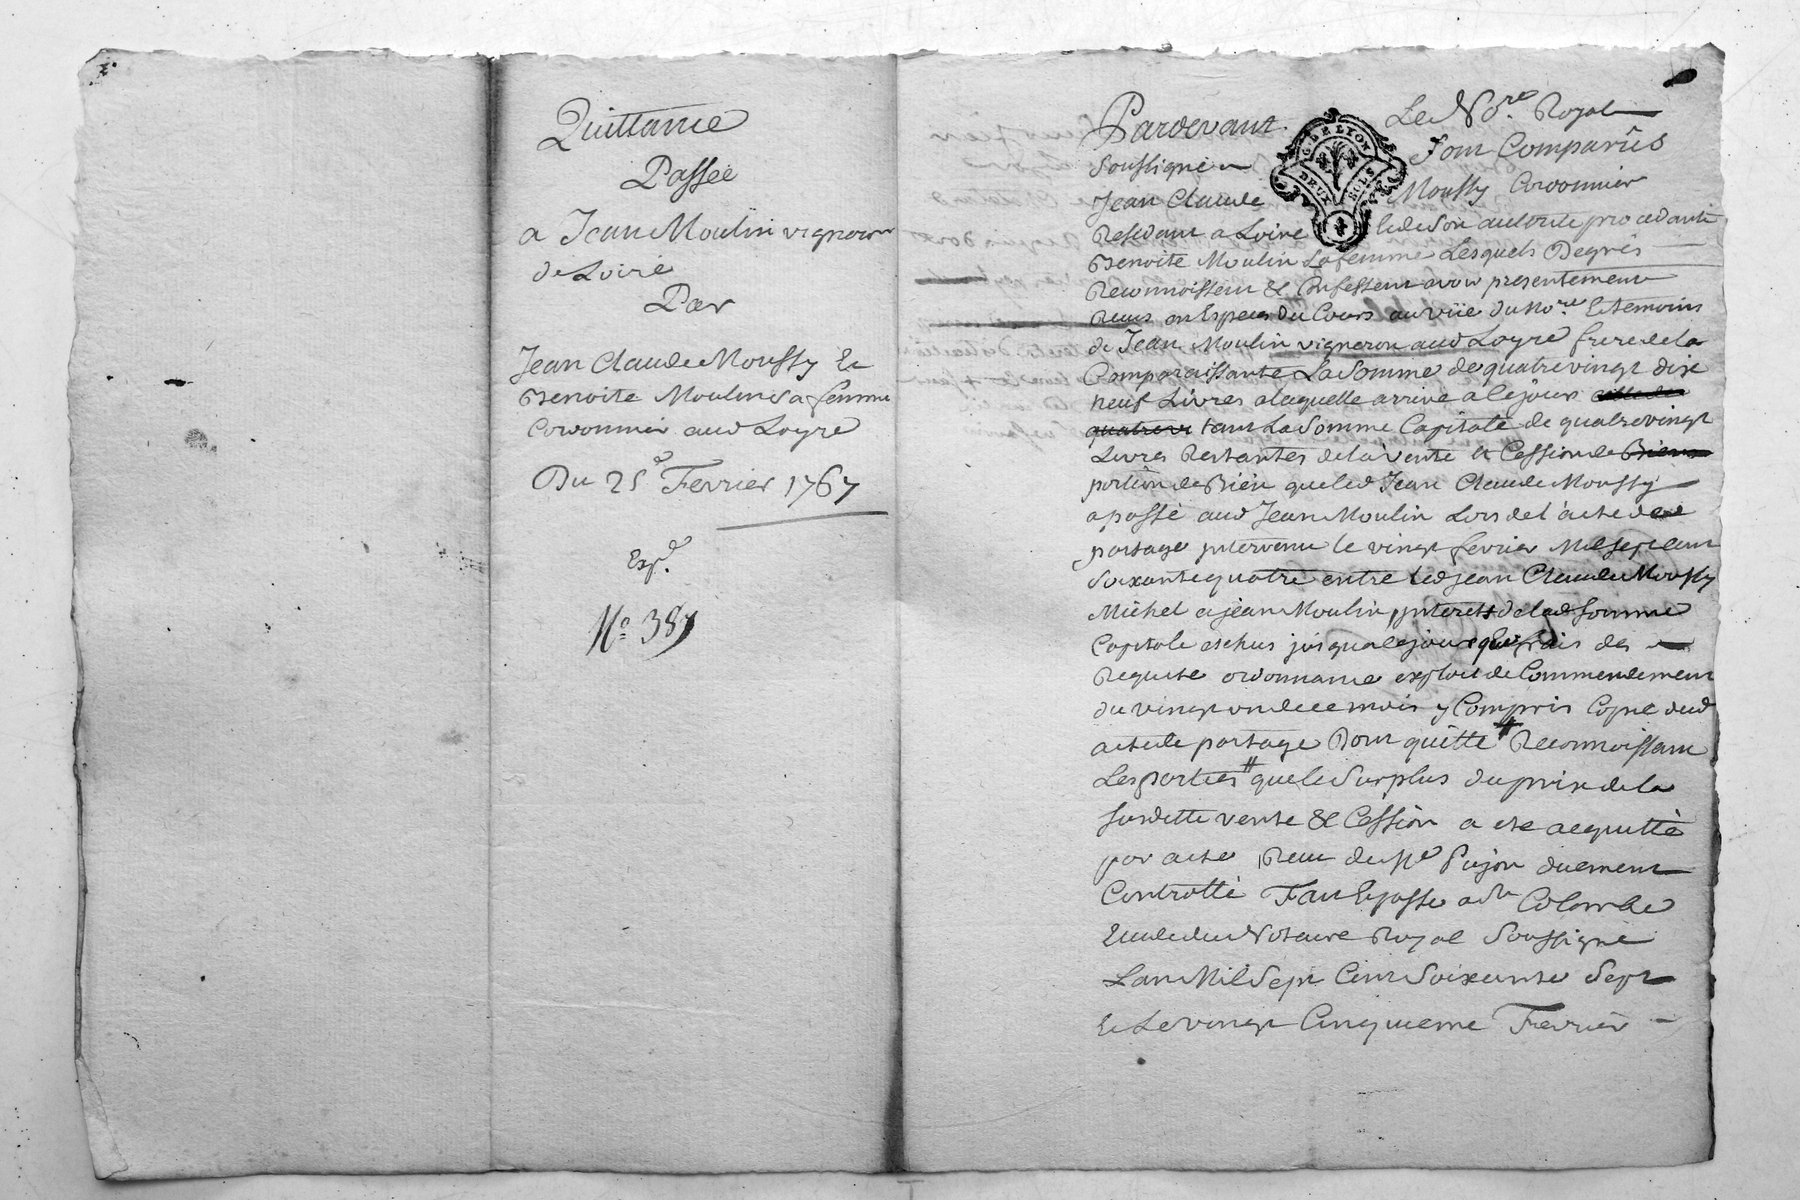 Quittance
Passée
a Jean Moulin vigneron
de Loire
Par
Jean Claude Moussy Et
Benoite Moulin sa femme
Cordonnier aud Loyre
Du 25e Fevrier 1767
Expd.
No 387
Pardevant Le Nore. Royal
Soussigné Sont Comparus
G. DE LYON
DEUX SOLS
Jean Claude Moussy Cordonnier
Residant a Loire & de Son autorité procedante
Benoite Moulin Sa femme Lesquels Degrés
Reconnoissent & Confessent avoir presentement
Receus en Especes du Cours au vüe du Nore. & temoins
de Jean Moulin vigneron aud Loyre frere de la
Comparaissante La Somme de quatre vingt dix
neuf Livres a laquelle arrive a le jour
quatrevt tant La Somme Capitale de quatrevingt
Livres Restantes de la vente et Cession de Biens
portion de Bien que led Jean Claude Moussy
a passé aud Jean Moulin Lors de l'acte de
partage intervenu le vingt fevrier Mil Sept Cent
Soixante quatre entre led jean Claude Moussy
Michel et jean Moulin interets de lad Somme
Capitale echus jusqua le jour que frais des
Requete ordonnance exploit de Commendement
du vingt un de ce mois y Compris Copie dud
acte de partage Dont quitte # Reconnoissant
Les parties # que le Surplus du prix de la
Surdette vente & Cession a ete acquitté
par acte Receu de Me Pujon duement
Controllé Fait & passé a Ste Colombe
Etude du Notaire Royal Soussigne
Lan Mil Sept Cent Soixante Sept
Et Le vingt Cinquieme Fevrier